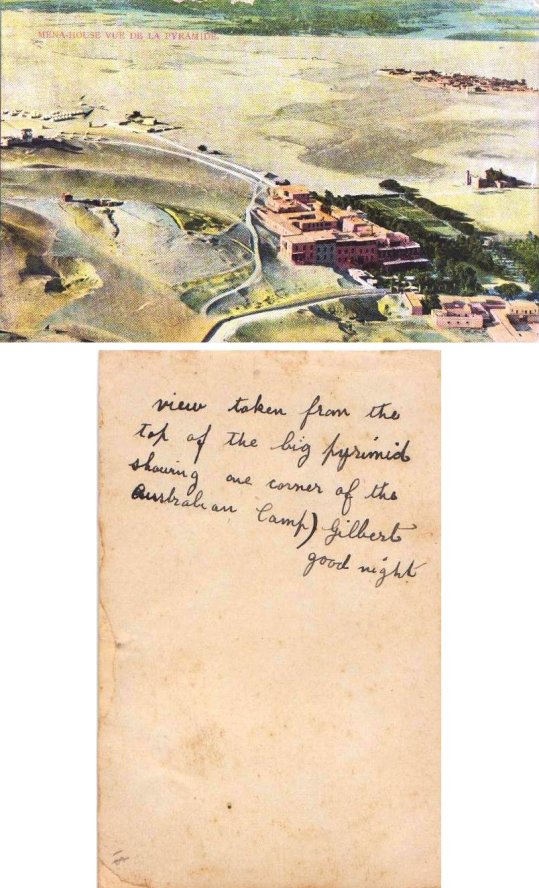 MENA-HOUSE VUE DE LA PYRAMIDE.
view taken from the
top of the big pyrimid
showing one corner of the
Australian Camp) Gilbert
good night